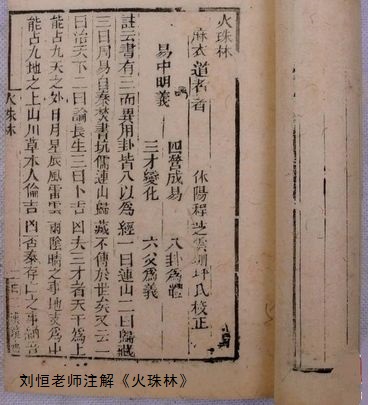 火珠林
麻衣道者著 休陽程芝雲珊坪氏校正
易中明義
四營成易 八卦為體
三才變化 六爻為義
註云書有三而異用卦皆八以為經一曰連山二曰歸藏
三曰周易自秦焚書坑儒連山歸藏不傳於世矣又云一
曰治天下二曰論長生三曰卜吉凶夫三才者天為上
能占九天之外日月星辰風雷雲雨陰晴之事地爻為中
能占九地之上山川草木人倫吉凶否泰存亡之事
火珠林
刘恒老师注解《火珠林》